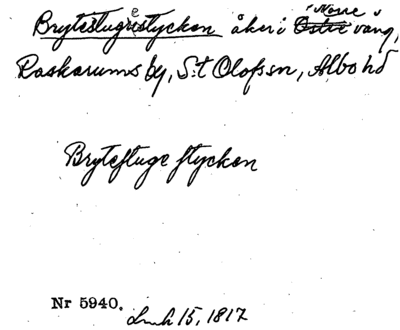 Brytestuge stycken åker i Norre vång,
Raskarums by, S:t Olofs sn, Albo hd
Bryteftuge ftycken
Nr 5940.
15, 1817